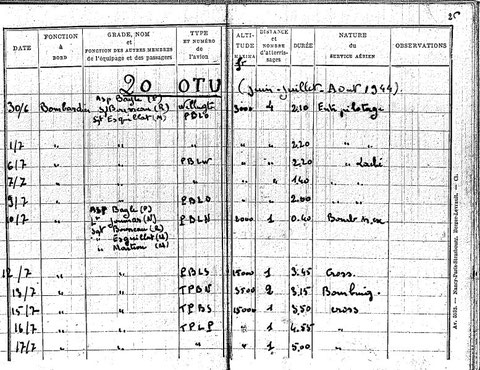 25
DATE | FONCTION à BORD | GRADE, NOM et FONCTION DES AUTRES MEMBRES de l'équipage et des passagers | TYPE ET NUMÉRO de l'avion | ALTITUDE MAXIMA | DISTANCE et NOMBRE d'atterrissages | DURÉE | NATURE du SERVICE AÉRIEN | OBSERVATIONS
20 OTU (Juin-Juillet-Aout 1944)
Asp Bayle (P)
30/6 Bombardier St Bonneau (R) 3000 4 2.10 Ent pilotage
Sgt Esquillat (M) PBLO
1/7 " " " " " 2.20 "
6/7 " " PBLW " " 2.20 " Laché
7/7 " " " " " 1.40 " "
9/7 " " PBLO " " 2.00 " "
Asp Bayle (P)
10/7 " (N) PBLN 2000 1 0.40
Sgt Bonneau (R)
" Esquillat (M)
" (M)
12/7 " " PBLS 15000 1 3.45 Cross.
13/7 " " TPBN 3500 2 3.15 Bombing.
15/7 " " TPBS 15000 1 3.50 cross
16/7 " " TPLP " 1 4.55 "
17/7 " " " " 1 5.00 "
Av. 2032. — Nancy-Paris-Strasbourg, Berger-Levrault. — Cl.